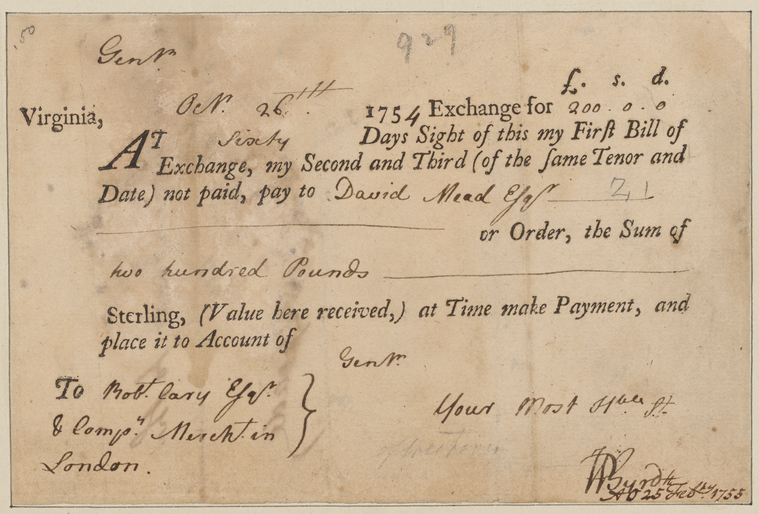 150
929
Gentn
£. s. d.
Virginia, Octr. 26th 1754 Exchange for 200.0.0
AT sixty Days Sight of this my First Bill of
Exchange, my Second and Third (of the same Tenor and
Date) not paid, pay to David Mead Esqr 21
or Order, the Sum of
two hundred Pounds
Sterling, (Value here received,) at Time make Payment, and
place it to Account of
Gentn.
To Robt. Cary Esqr. Your Most Hble St.
& Compy. Mercht. in
London.
of Westover
WByrd
25 Febry 1755